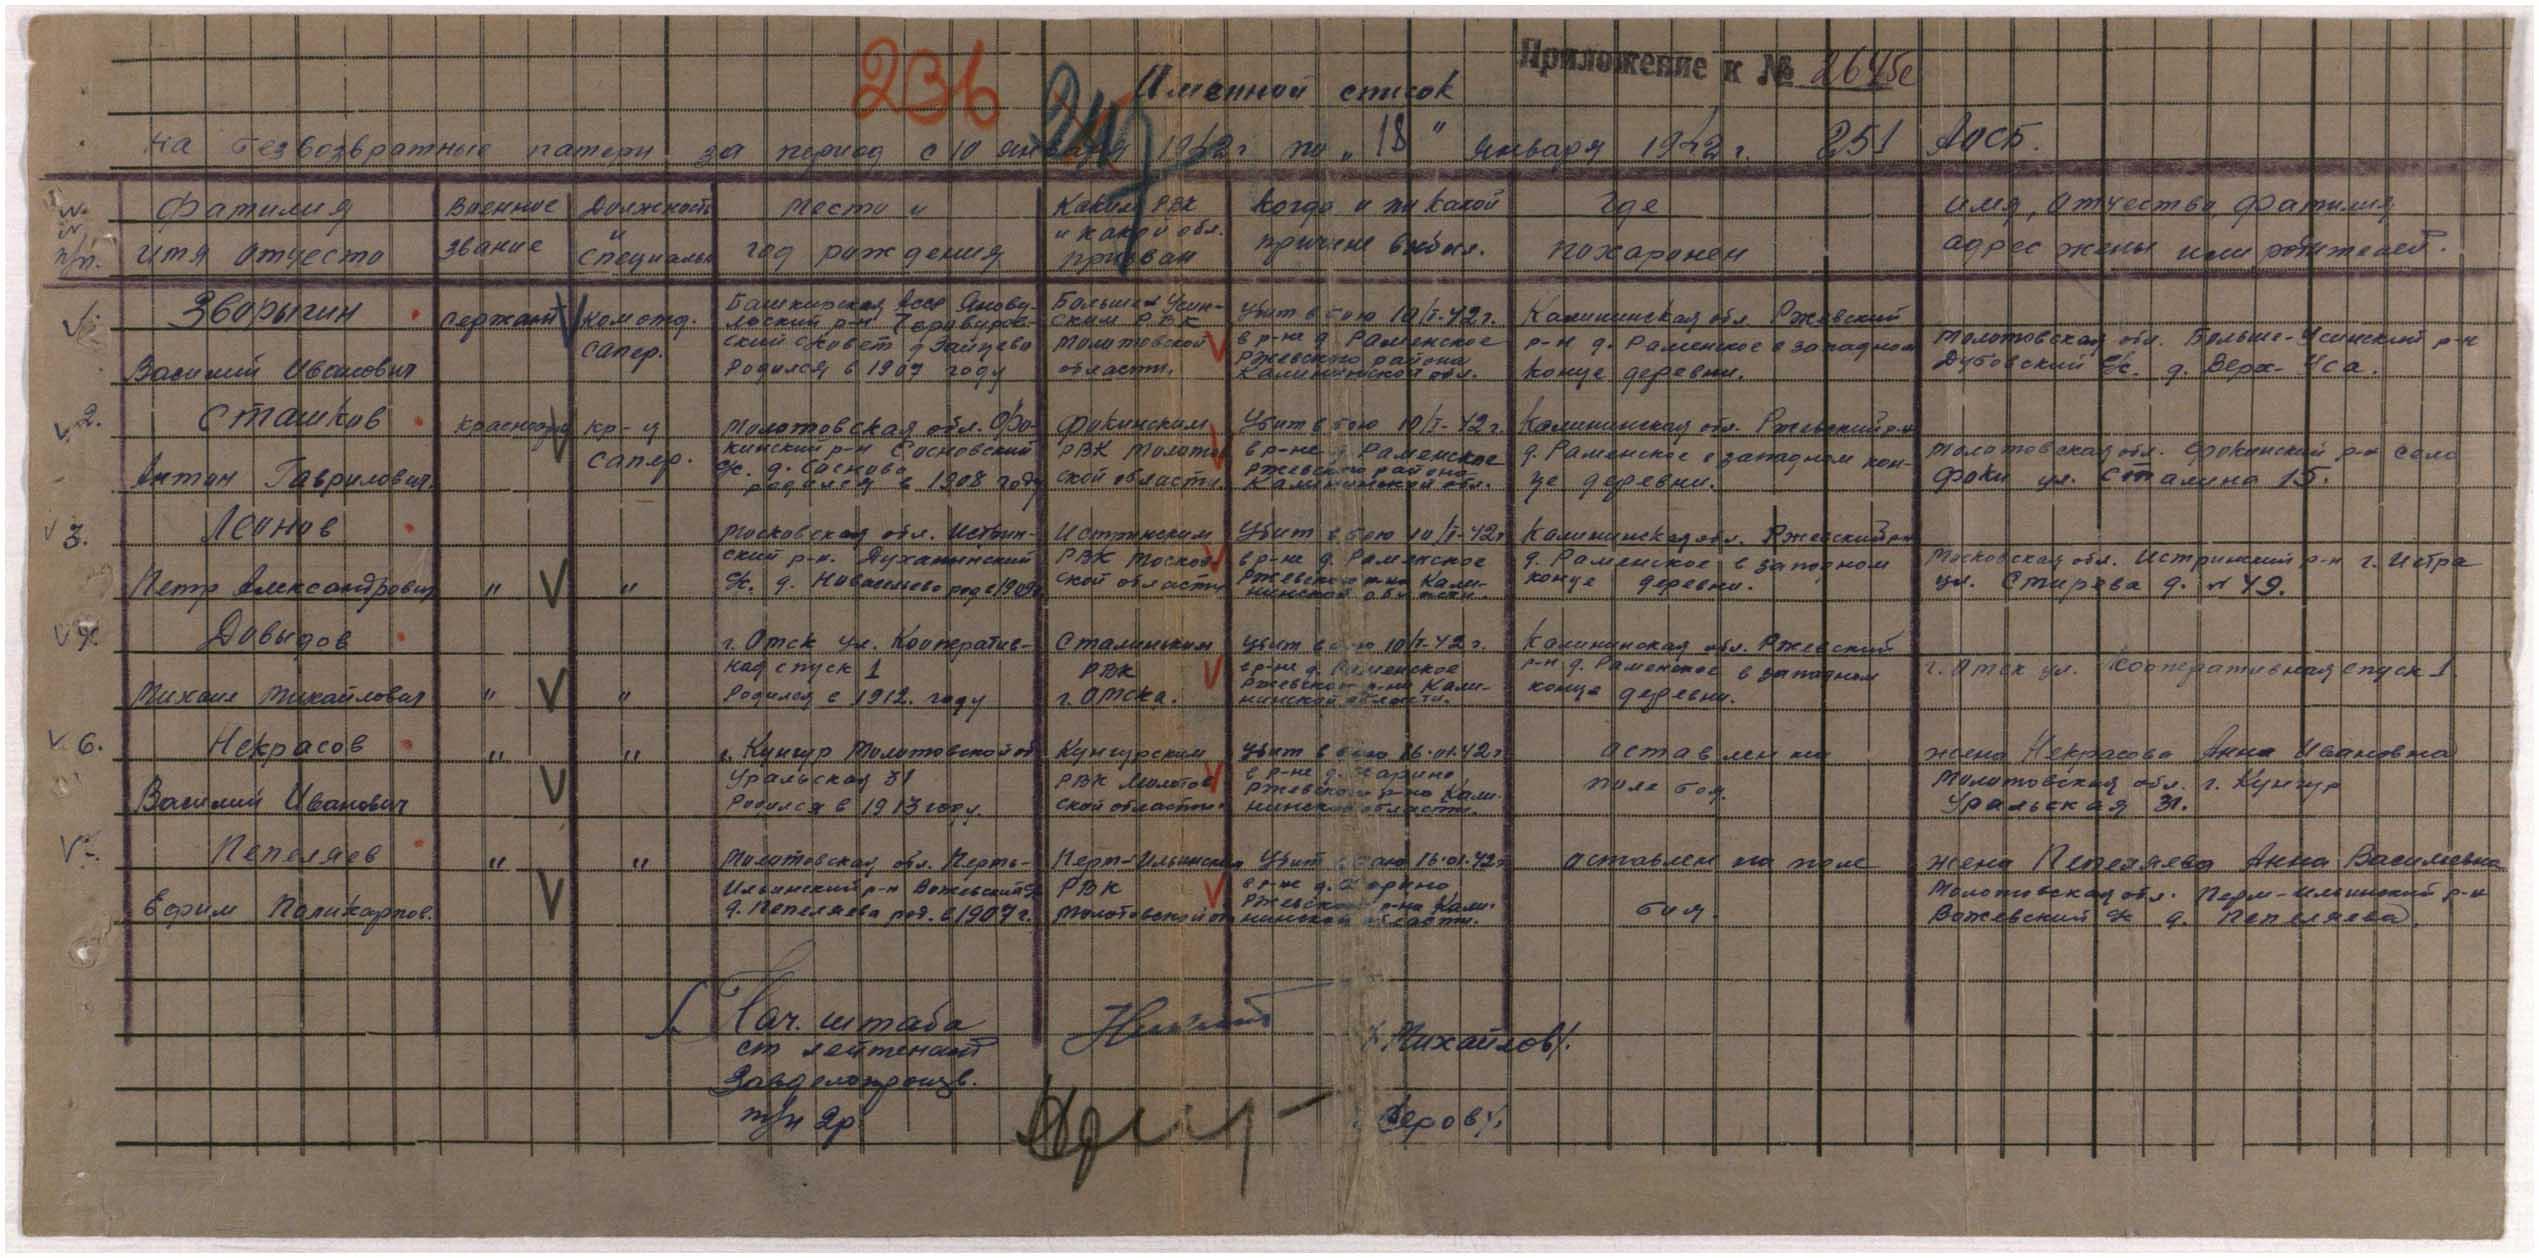 Приложение к № 2645с
236
Именной список
на безвозвратные патери за период с 10 января 1942 г. по "18" января 1942 г. 251 АОСБ.
Фамилия
имя отчество
Военное
звание
Должность
и
специальн
место и
год рождения
Каким РВК
и какой обл.
призван
Когда и по какой
причине выбыл.
Где
похаронен
имя, отчество, фамилия
адрес жены или родителей.
Зворыгин
Василий Иванович
сержант
ком отд.
сапер.
Башкирская Асср Янауль-
ский р-н
ский с/совет д Зайцево
Родился в 1907 году
Больше Усин-
ским РВК
Молотовской
области.
Убит в бою 10/I-42 г.
в р-не д. Раменское
Ржевского района
Калининской обл.
Калининская обл Ржевский
р-н д. Раменское в западном
конце деревни.
Молотовская обл. Больше-Усинский р-н
Дубовский с/с. д. Верх-Уса.
2.
Сташков
Антон Гаврилович
кр-ц
сапер.
Молотовская обл. Фо-
кинский р-н Сосновский
с/с. д. Соснова
родился в 1908 году
Фокинским
РВК Молотов
ской области
Убит в бою 10/I-42 г.
в р-не д Раменское
Ржевского района
Калининской обл.
Калининская обл. Ржевский р-н
д. Раменское в западном кон-
це деревни.
Молотовская обл. Фокинский р-н село
Фоки ул. Сталина 15.
3.
Леонов
Петр Александрович
"
"
Московская обл. Истрин-
ский р-н. Духанинский
с/с. д.
Истринским
РВК Москов
ской области
Убит в бою 10/I-42 г
в р-не д. Раменское
Ржевского р-на Кали-
нинской области.
Калининская обл. Ржевский р-н
д. Раменское в западном
конце деревни.
Московская обл. Истринский р-н г. Истра
ул. д. № 49.
4.
Довыдов
Михаил Михайлович
"
"
г. Омск ул. Кооператив-
ная спуск 1
Родился в 1912 году
Сталинским
РВК
г. Омска.
Убит в бою 10/I-42 г.
в р-не д. Раменское
Ржевского р-на Кали-
нинской области.
Калининская обл. Ржевский
р-н д. Раменское в западном
конце деревни.
г. Омск ул. Кооперативная спуск 1.
6.
Некрасов
Василий Иванович
"
"
г. Кунгур Молотовской об
Уральская 31
Родился в 1913 году.
Кунгурским
РВК Молотов
ской области.
Убит в бою 16.01.42 г
в р-не д.
Ржевского р-на Кали-
нинской области.
аставлен на
поле боя.
жена Некрасова Анна Ивановна
Молотовская обл. г. Кунгур
Уральская 31.
Пепеляев
Ефим Поликарпов.
"
"
Молотовская обл. Пермь-
Ильинский р-н Вожевский с/с
д. Пепеляева род. в 1907 г.
Перм-Ильинским
РВК
Молотовской об
Убит в бою 16.01.42 г
в р-не д.
Ржевского р-на Кали-
нинской области.
аставлен на поле
боя.
жена Пепеляева Анна Василевна
Молотовская обл. Перм-Ильинский р-н
Вожевский с/с д. Пепеляева.
Нач. штаба
ст лейтенант
/Михайлов/.
Завделопроизв.
Серов/.